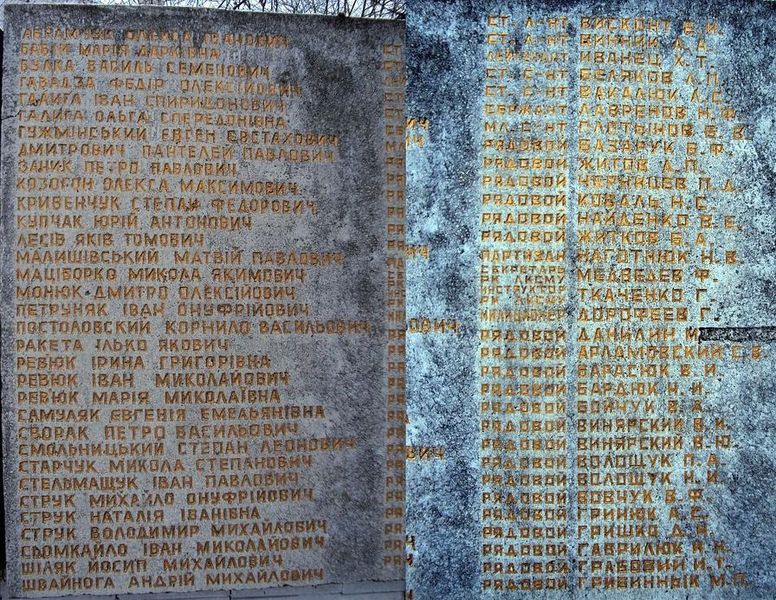 АБРАМЧУК ОЛЕКСА ІВАНОВИЧ
БАБІЙ МАРІЯ ДАНИЛІВНА
БУЛКА ВАСИЛЬ СЕМЕНОВИЧ
ГАВАДЗА ФЕДІР ОЛЕКСІЙОВИЧ
ГАЛИГА ІВАН СПИРИДОНОВИЧ
ГАЛИГА ОЛЬГА СПЕРЕДОНІВНА
ГУЖМІНСЬКИЙ ЕВГЕН ЄВСТАХОВИЧ
ДМИТРОВИЧ ПАНТЕЛЕЙ ПАВЛОВИЧ
ЗАНИК ПЕТРО ПАВЛОВИЧ
КОЗОГОН ОЛЕКСА МАКСИМОВИЧ
КРИВЕНЧУК СТЕПАН ФЕДОРОВИЧ
КУПЧАК ЮРІЙ АНТОНОВИЧ
ЛЕСІВ ЯКІВ ТОМОВИЧ
МАЛИШІВСЬКИЙ МАТВІЙ ПАВЛОВИЧ
МАЦІБОРКО МИКОЛА ЯКИМОВИЧ
МОНЮК ДМИТРО ОЛЕКСІЙОВИЧ
ПЕТРУНЯК ІВАН ОНУФРІЙОВИЧ
ПОСТОЛОВСКИЙ КОРНИЛО ВАСИЛЬОВИЧ
РАКЕТА ІЛЬКО ЯКОВИЧ
РЕВЮК ІРИНА ГРИГОРІВНА
РЕВЮК ІВАН МИКОЛАЙОВИЧ
РЕВЮК МАРІЯ МИКОЛАЇВНА
САМУЛЯК ЄВГЕНІЯ ЕМЕЛЬЯНІВНА
СВОРАК ПЕТРО ВАСИЛЬОВИЧ
СМОЛЬНИЦЬКИЙ СТЕПАН ЛЕОНОВИЧ
СТАРЧУК МИКОЛА СТЕПАНОВИЧ
СТЕЛЬМАЩУК ІВАН ПАВЛОВИЧ
СТРУК МИХАЙЛО ОНУФРІЙОВИЧ
СТРУК НАТАЛІЯ ІВАНІВНА
СТРУК ВОЛОДИМИР МИХАЙЛОВИЧ
СЬОМКАЙЛО ІВАН МИКОЛАЙОВИЧ
ШІЛЯК ЙОСИП МИХАЙЛОВИЧ
ШВАЙНОГА АНДРІЙ МИХАЙЛОВИЧ
СТ. Л-НТ ВИСКОНТ Е. И.
СТ. Л-НТ ВИННИК А. А.
ЛЕЙТЕНАНТ ИВАНЕЦ Х. Т.
СТ. С-НТ БЕЛЯКОВ Л. П.
СТ. С-НТ ВАКАЛЮК Л. С.
СЕРЖАНТ ЛАВРЕНОВ Н. Ф.
МЛ. С-НТ Е. В.
РЯДОВОЙ БАЗАРУК В. Ф.
РЯДОВОЙ ЖИТОВ Д. П.
РЯДОВОЙ ЧЕРНИЦЕВ П. Д.
РЯДОВОЙ КОВАЛЬ Н. С.
РЯДОВОЙ НАЙДЕНКО В. Е.
РЯДОВОЙ ЖИТКОВ Б. А.
ПАРТИЗАН НАГОТНЮК Н. В.
СЕКРЕТАРЬ МЕДВЕДЕВ Ф.
ТКАЧЕНКО Г.
МИЛИЦИОНЕР ДОРОФЕЕВ Г.
РЯДОВОЙ ДАНИЛИН И.
РЯДОВОЙ АРЛАМОВСКИЙ С. В.
РЯДОВОЙ БАРАСЮК В. И.
РЯДОВОЙ БАРДЮК Н. И.
РЯДОВОЙ БОЙЧУК В. А.
РЯДОВОЙ ВИНЯРСКИЙ В. И.
РЯДОВОЙ ВИНЯРСКИЙ В. Ю.
РЯДОВОЙ ВОЛОЩУК П. А.
РЯДОВОЙ ВОЛОЩУК Н. И.
РЯДОВОЙ ВОВЧУК В. Ф.
РЯДОВОЙ ГРИНЮК А. С.
РЯДОВОЙ ГРИШКО Д. Я.
РЯДОВОЙ ГАВРИЛЮК И. Н.
РЯДОВОЙ ГРАБОВИЙ И. Т.
РЯДОВОЙ ГРИВИННЫК М. П.